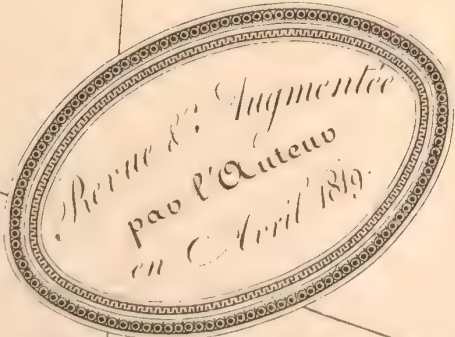 Revue & Augmentée
par l'Auteur
en Avril 1819.